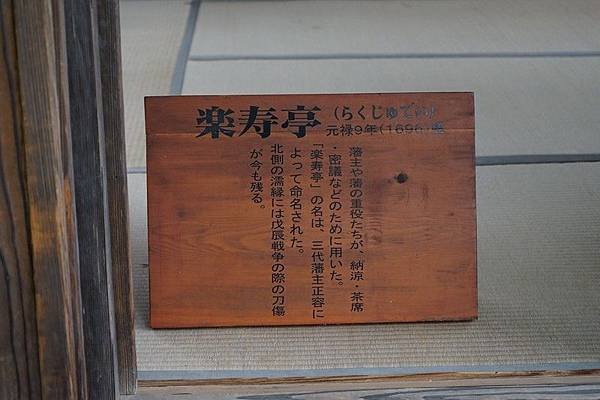 楽寿亭
(らくじゅてい)
元禄9年(1696)
藩主や藩の重役たちが、納涼・茶席
・密議などのために用いた。
「楽寿亭」の名は、三代藩主正容に
よって命名された。
北側の濡縁には戊辰戦争の際の刀傷
が今も残る。